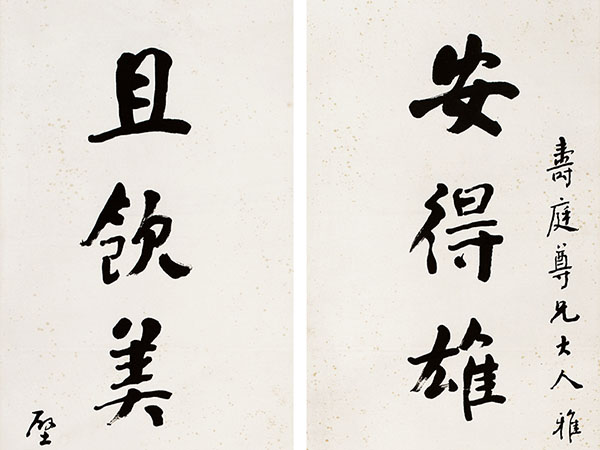 壽庭尊兄大人雅
安得雄
且飲美